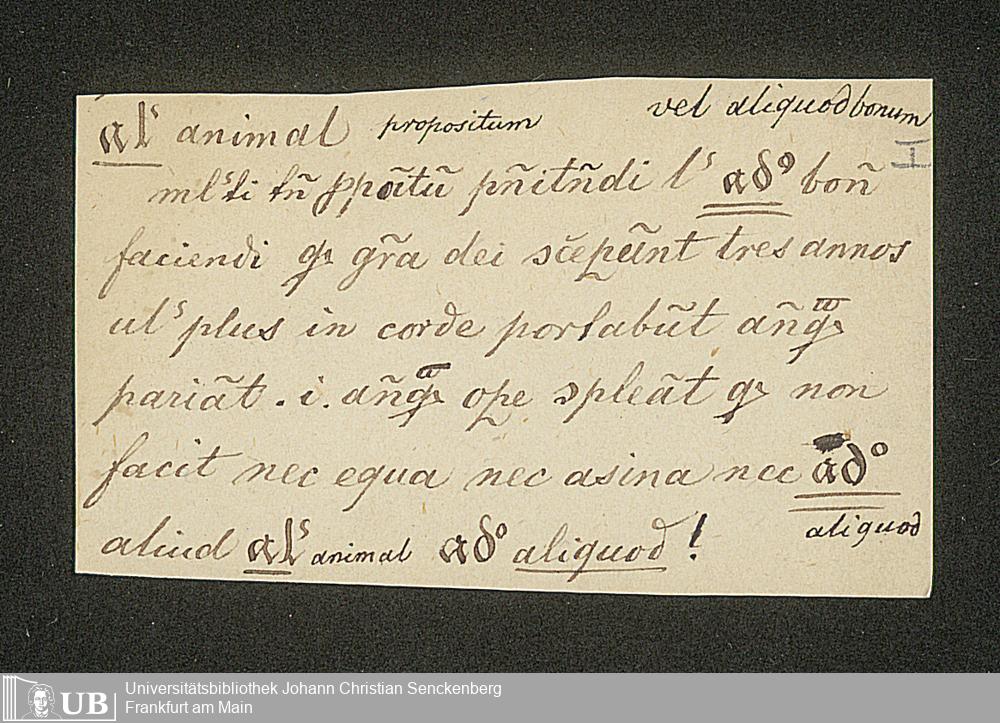 alˢ animal propositum vel aliquod bonum
I
mlˢti tñ ꝓpõitũ pñitñdi lˢ adº boñ
faciendi qꝫ gr̃a dei sc̃epẽrnt tres annos
ulˢ plus in corde portabũt añqᷓꝫ
pariãt . i . añqᷓꝫ oꝑe ɔpleãt qꝫ non
facit nec equa nec asina nec adº
aliud alˢ animal adº aliquod ! aliquod
UB Universitätsbibliothek Johann Christian Senckenberg
Frankfurt am Main